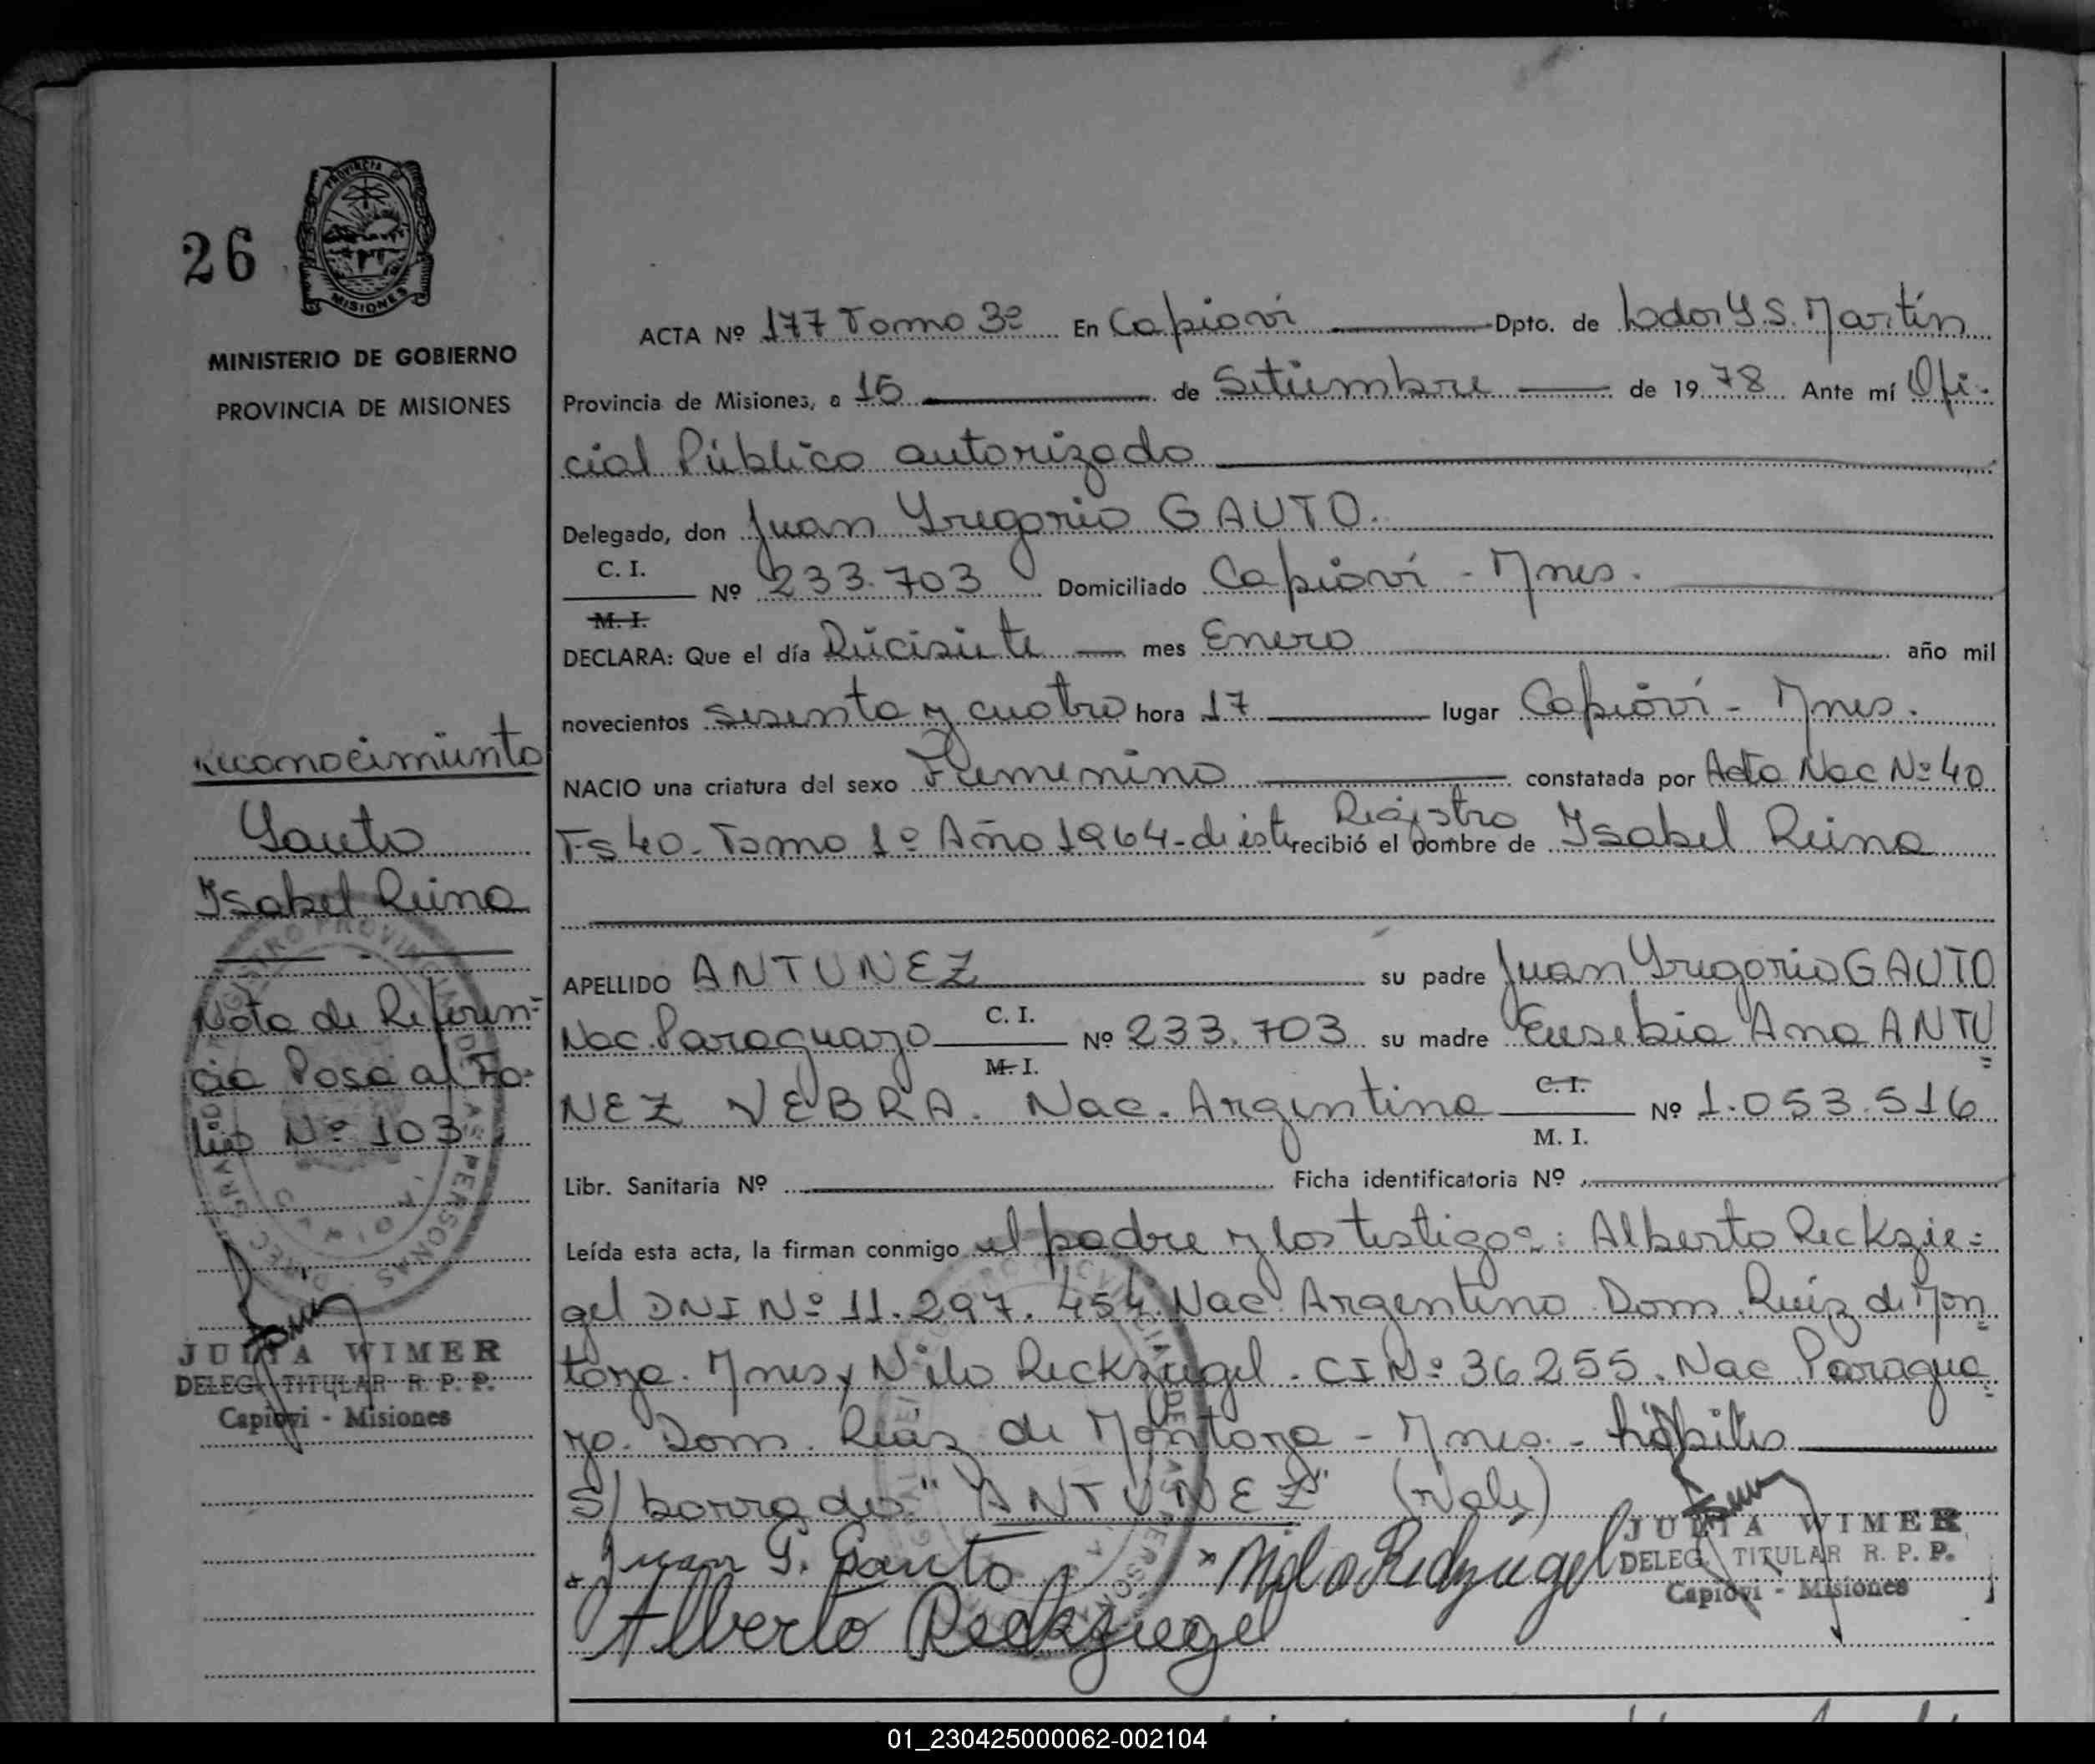 26
PROVINCIA DE
MISIONES
MINISTERIO DE GOBIERNO
PROVINCIA DE MISIONES
Reconocimiento
Gauto
Isabel Reina
Nota de Referen=
cia Pasa al Fo-
lio Nº 103
JULIA WIMER
DELEG. TITULAR R. P. P.
Capiovi - Misiones
ACTA Nº 177 Tomo 3º En Capioví Dpto. de Ldor G S. Martín
Provincia de Misiones, a 15 de Setiembre de 1978 Ante mí Ofi-
cial Público autorizado
Delegado, don Juan Gregorio GAUTO.
C. I.
Nº 233.703 Domiciliado Capioví - Mnes.
M. I.
DECLARA: Que el día Diecisiete mes Enero año mil
novecientos sesenta y cuatro hora 17 lugar Capioví - Mnes.
NACIO una criatura del sexo Femenino constatada por Acta Nac Nº 40
Registro
Fs 40. Tomo 1º Año 1964 - de este recibió el nombre de Isabel Reina
APELLIDO ANTUNEZ su padre Juan Gregorio GAUTO
Nac. Paraguayo C. I. Nº 233.703 su madre Eusebia Ana ANTU
M. I.
=
NEZ VEBRA. Nac. Argentina C. I. Nº 1.053.516
M. I.
Libr. Sanitaria Nº Ficha identificatoria Nº
Leída esta acta, la firman conmigo el padre y los testigos: Alberto Reckzie=
gel DNI Nº 11.297.454. Nac. Argentino Dom. Ruiz de Mon
=
toya. Mnes y Nilo Reckziegel. CI Nº 36255. Nac Paragua
=
yo. Dom. Ruiz de Montoya - Mnes. - hábiles
S/ borrado: "ANTUNEZ" (Vale)
Juan G. Gauto
Nilo Reckziegel
JULIA WIMER
DELEG. TITULAR R. P. P.
Capiovi - Misiones
Alberto Reckziegel
01_230425000062-002104